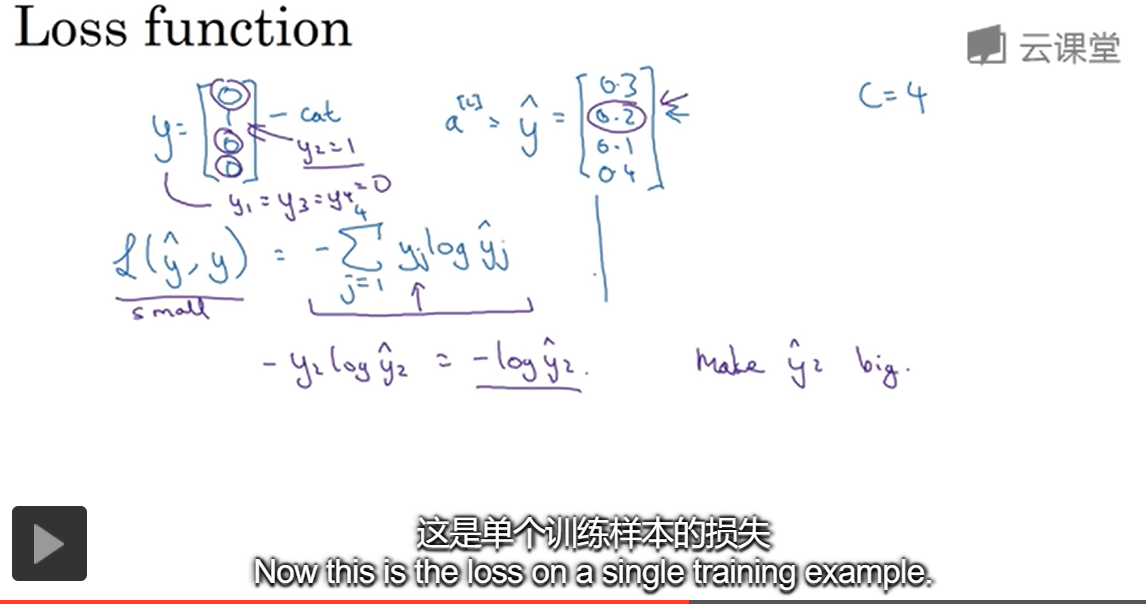 Loss function
云课堂
y = [0 1 0 0] - cat
y₂ = 1
y₁ = y₃ = y₄ = 0
a^[L] = ŷ = [0.3 0.2 0.1 0.4]
C = 4
ℒ(ŷ, y) = - ∑_{j=1}^{4} yⱼ log ŷⱼ
small
- y₂ log ŷ₂ = - log ŷ₂.
Make ŷ₂ big.
这是单个训练样本的损失
Now this is the loss on a single training example.